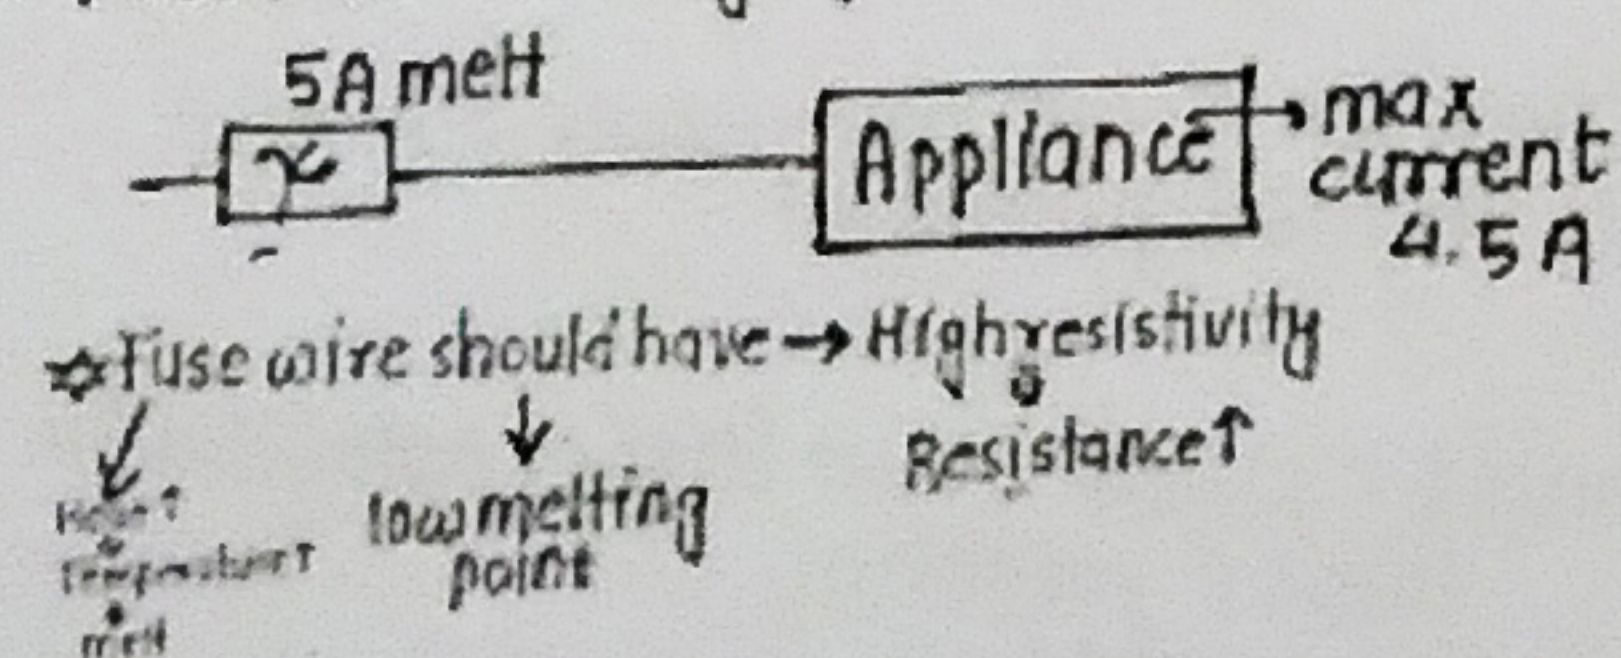 5A melt
Appliance → max
current
4.5 A
☆ Fuse wire should have → High resistivity
Resistance↑
↓
low melting
point
Heat↑
Temperature↑
melt